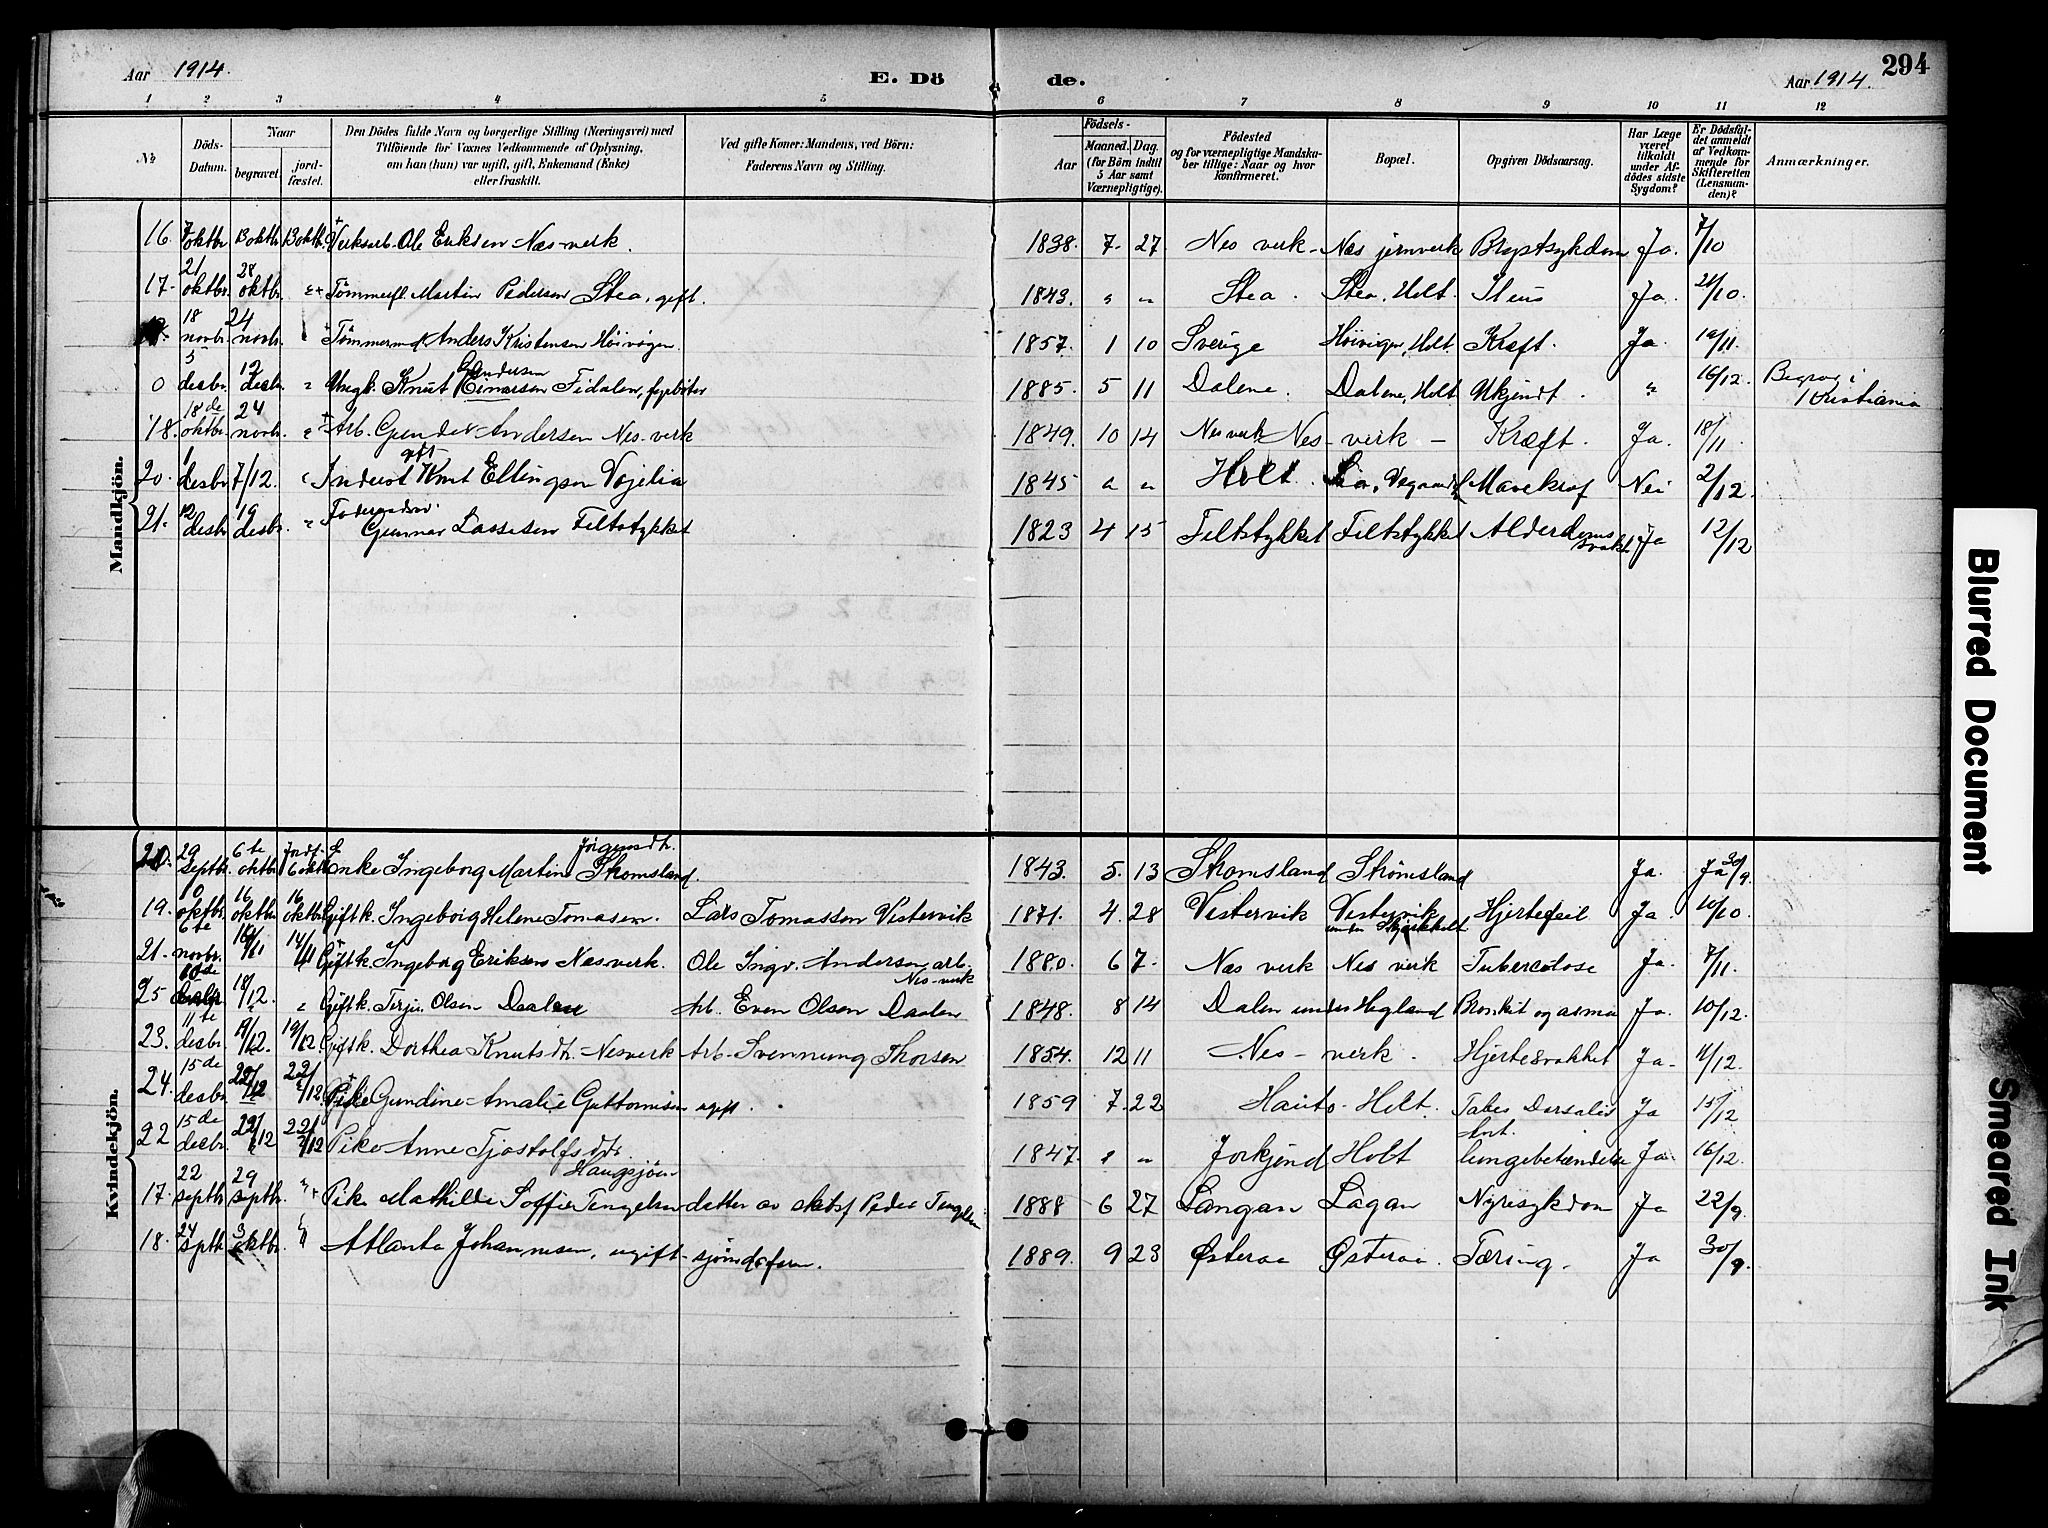 Aar 1914. E. Dö de. Aar 1914. 294
1 2 3 4 5 6 7 8 9 10 11 12
No. Döds-Datum. Naar begravet. jord-fæstet. Den Dödes fulde Navn og borgerlige Stilling (Næringsvei) med Tilföiende for Voxnes Vedkommende af Oplysning, om han (hun) var ugift, gift, Enkemand (Enke) eller fraskilt. Ved gifte Koner: Mandens, ved Börn: Faderens Navn og Stilling. Födsels- Aar Maaned. Dag. (for Börn indtil 5 Aar samt Værnepligtige). Födested og for værnepligtige Mandskaber tillige: Naar og hvor Konfirmeret. Bopæl. Opgiven Dödsaarsag. Har Læge været tilkaldt under Afdödes sidste Sygdom? Er Dödsfaldet anmeldt af Vedkommende for Skifteretten (Lensmanden)? Anmærkninger.
Mandkjön.
16. 7 oktbr. 13 oktbr. 13 oktb. Verksarb. Ole Eriksen Næs-verk. 1838. 7. 27 Nes verk - Næs jernverk Brystsykdom Ja. 7/10
17. 21 oktbr. 28 oktbr. Martin Pedersen Stea, gift. 1843. " " Stea. Stea, Holt. Ileus Ja. 21/10.
18 novbr. 24 novbr. Anders Kristensen Höivågen. 1857. 1 10 Sverige Holt. Kræft. Ja. 19/11.
0 5 desbr. 12 desbr. " Ungk. Knut Gundersen Einarsen 1885. 5 11 Dalene. Dalene, Holt Ukjendt. " 16/12. Begrav. i Kristiania
18. 18de oktbr. 24 novbr. " Arb. Gunder Andersen Nes-verk gift 1849. 10 14 Nesverk Nes-verk - Kræft. Ja 18/11.
20. 1 desbr. 7/12. " Inderst Knut Ellingsen 1845 " " Holt. Nei 2/12.
21. 12 desbr. 19 desbr. " Gunnar Lassesen Feltstykket 1823 4 15 Feltstykket Feltstykket Alderdomssvakh. Ja 12/12
Kvindekjön.
20. 29 septbr. 6te oktbr. Jordf. 6 oktb. Enke Ingeborg Martine Jörgensdtr. Strømsland. 1843. 5. 13 Strømsland Strømsland Ja. Ja 30/9.
19. 10 oktbr. 16 oktbr. 16 oktbr. Gift k. Ingeborg Helene Tomasen. Lars Tomassen Vestervik 1871. 4. 28 Vestervik Vestervik Hjertefeil Ja 10/10
21. 6te novbr. 14/11 14/11 Gift k. Ingeborg Eriksen Næsverk. Ole Ingv. Andersen arb. Nes-verk 1880. 6 7. Næs verk Nes verk Tuberculose Ja. 7/11.
25 18/12. " Gift k. Olsen Daalen Arb. Even Olsen Daalen 1848. 8 14 Dalen under Hegland Bronkit og asma Ja. 10/12.
23. 11te desbr. 19/12. 19/12. Gift k. Dorthea Knutsdtr. Nesverk Arb. Svennung Thorsen 1854. 12 11 Nes-verk. Hjertesvakhet Ja. 11/12.
24. 15de desbr. 22/12 22/12 Pike Gundine Amalie Guttormsen ugift. 1859 7. 22 Holt. Tabes Dorsalis Ja 15/12
22 15de desbr. 22/12 22/12 Pike Anne Tjostolfsdtr. Haugsjöen 1847. " " Holt lungebetændelse Ja. 16/12.
17. 22 septbr. 29 septbr. " Pike Mathilde Soffie Tengelsen datter av skibsf. Peder Tengelsen 1888 6 27 Langan Lagan Nyresykdom Ja 22/9.
18. 24 septb. 3 oktbr. " Atlanta Johannesen, ugift - sjömdsfarer. 1889. 9 23 Østeraa Østeraa. Tæring. Ja 30/9.
Blurred Document
Smeared Ink